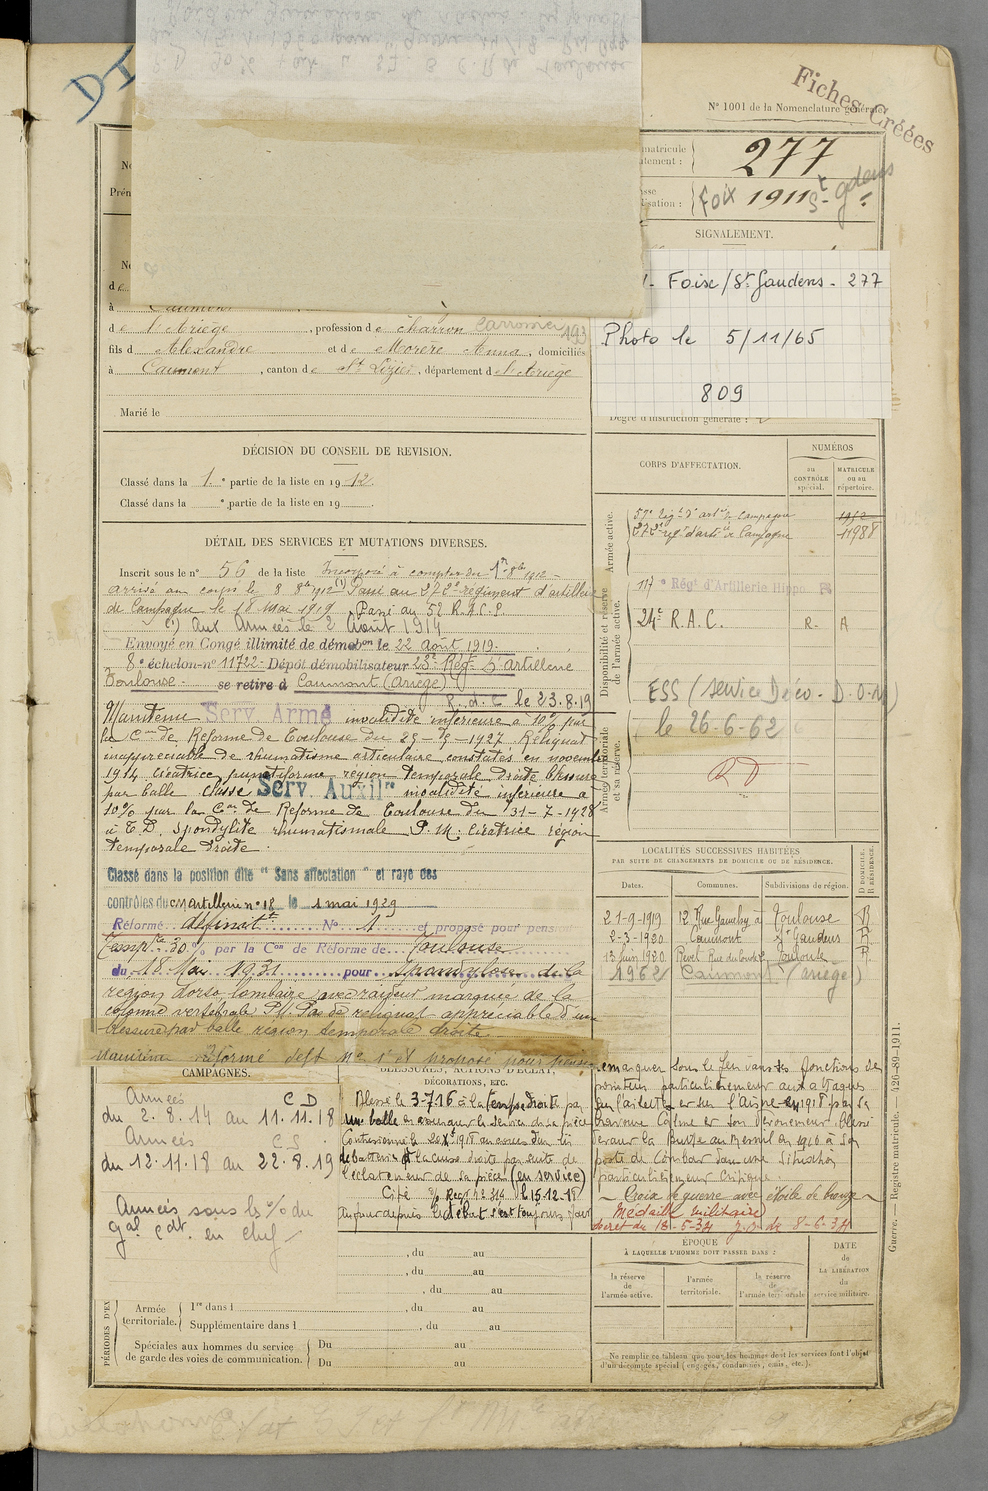 DI
Fiches Créées
N° 1001 de la Nomenclature générale
matricule
277
Foix 1911 St Gdens
SIGNALEMENT.
Foix/St Gaudens - 277
Photo le 5/11/65
809
Prén
à Caumont
de l'Ariège, profession de charron
fils d Alexandre et de Morère Anna, domiciliés
à Caumont, canton de St Lizier, département de l'Ariège
Marié le
Degré d'instruction générale :
DÉCISION DU CONSEIL DE REVISION.
Classé dans la 1. e partie de la liste en 19 12
Classé dans la e partie de la liste en 19
CORPS D'AFFECTATION.
NUMÉROS
au CONTRÔLE spécial.
MATRICULE ou au répertoire.
Armée active.
57e Régt d'artie de Campagne
272e régt d'artie de Campagne 11988
Disponibilité et réserve de l'armée active.
117e Régt d'Artillerie Hippo
24e R.A.C. R. A
ESS (Service Déco. D.O.M)
le 26-6-62
Armée territoriale et sa réserve.
RD
DÉTAIL DES SERVICES ET MUTATIONS DIVERSES.
Inscrit sous le n° 56 de la liste Incorporé à compter du 1er 8bre 1912
arrivé au corps le 8 8bre 1912 (1) Passé au 272e régiment d'artillerie
de Campagne le 18 Mai 1919. Passé au 52 R.A.C.P.
(1) Aux Armées le 2 Août 1914
Envoyé en Congé illimité de démobon le 22 août 1919.
8e échelon-n° 11722- Dépôt démobilisateur 23e Régt d'artillerie
Toulouse - se retire à Caumont (Ariège)
R.d.C le 23.8.19
Maintenu Serv. Armé invalidité inférieure à 10% par
la Con de Réforme de Toulouse du 1927 Reliquat
inappréciable de rhumatisme articulaire constatés en novembre
1914 cicatrice punctiforme région temporale droite blessure
par balle classé Serv. Auxilre invalidité inférieure à
10% par la Con de Réforme de Toulouse du 31-7-1928
à T.D. Spondylite rhumatismale P.M. cicatrice région
temporale droite.
Classé dans la position dite "Sans affectation" et rayé des
contrôles du CM Artillerie n° 18 le 1 mai 1929
Réformé définitt N° 1 et proposé pour pens
Tempre 30% par la Con de Réforme de Toulouse
du 18 Mai 1931 pour spondylose de la
région dorso lombaire avec raideur marquée de la
colonne vertébrale P.M. Pas de reliquat appréciable d'une
blessure par balle région temporale droite
Maintenu réformé déft N° 1 et proposé pour pension
LOCALITÉS SUCCESSIVES HABITÉES
PAR SUITE DE CHANGEMENTS DE DOMICILE OU DE RÉSIDENCE.
Dates. Communes. Subdivisions de région. D DOMICILE. R RÉSIDENCE.
21-9-1919 12 Rue à Toulouse R
2-3-1920 Caumont St Gaudens R
13 Juin 1920 Toulouse R.
1962 Caumont (Ariège)
CAMPAGNES.
Armées C D
du 2.8.14 au 11.11.18
Armées C S
du 12.11.18 au 22.8.19
Armées sous le % du
gal cdt en chef
BLESSURES, ACTIONS D'ÉCLAT,
DÉCORATIONS, ETC.
Blessé le 3-7-16 à la tempe droite par
une balle en assurant le service de sa pièce
Contusionné le 1918 au cours d'un tir
de batterie à la cuisse droite par suite de
l'éclatement de sa pièce (en service)
Cité o/ Regt n° 314 le 15-12-18
Au front depuis le début s'est toujours fait
remarquer sous le feu dans les fonctions de
pointeur particulièrement aux attaques
en 1918 par sa
bravoure calme et son dévouement. Blessé
devant la Butte du Mesnil en 1916 à son
poste de combat dans une situation
particulièrement critique.
Croix de guerre avec étoile de bronze
Médaille militaire
décret du 18-5-34 J.O. du 8-6-34
, du au
, du au
, du au
ÉPOQUE
À LAQUELLE L'HOMME DOIT PASSER DANS :
la réserve de l'armée active.
l'armée territoriale.
la réserve de l'armée territoriale
DATE de LA LIBÉRATION du service militaire.
PÉRIODES D'EX
Armée territoriale. 1re dans l , du au
Supplémentaire dans l , du au
Spéciales aux hommes du service de garde des voies de communication. Du au
Du au
Ne remplir ce tableau que pour les hommes dont les services font l'objet
d'un décompte spécial (engagés, condamnés, omis, etc.).
Guerre. — Registre matricule. — 426-89-1911.